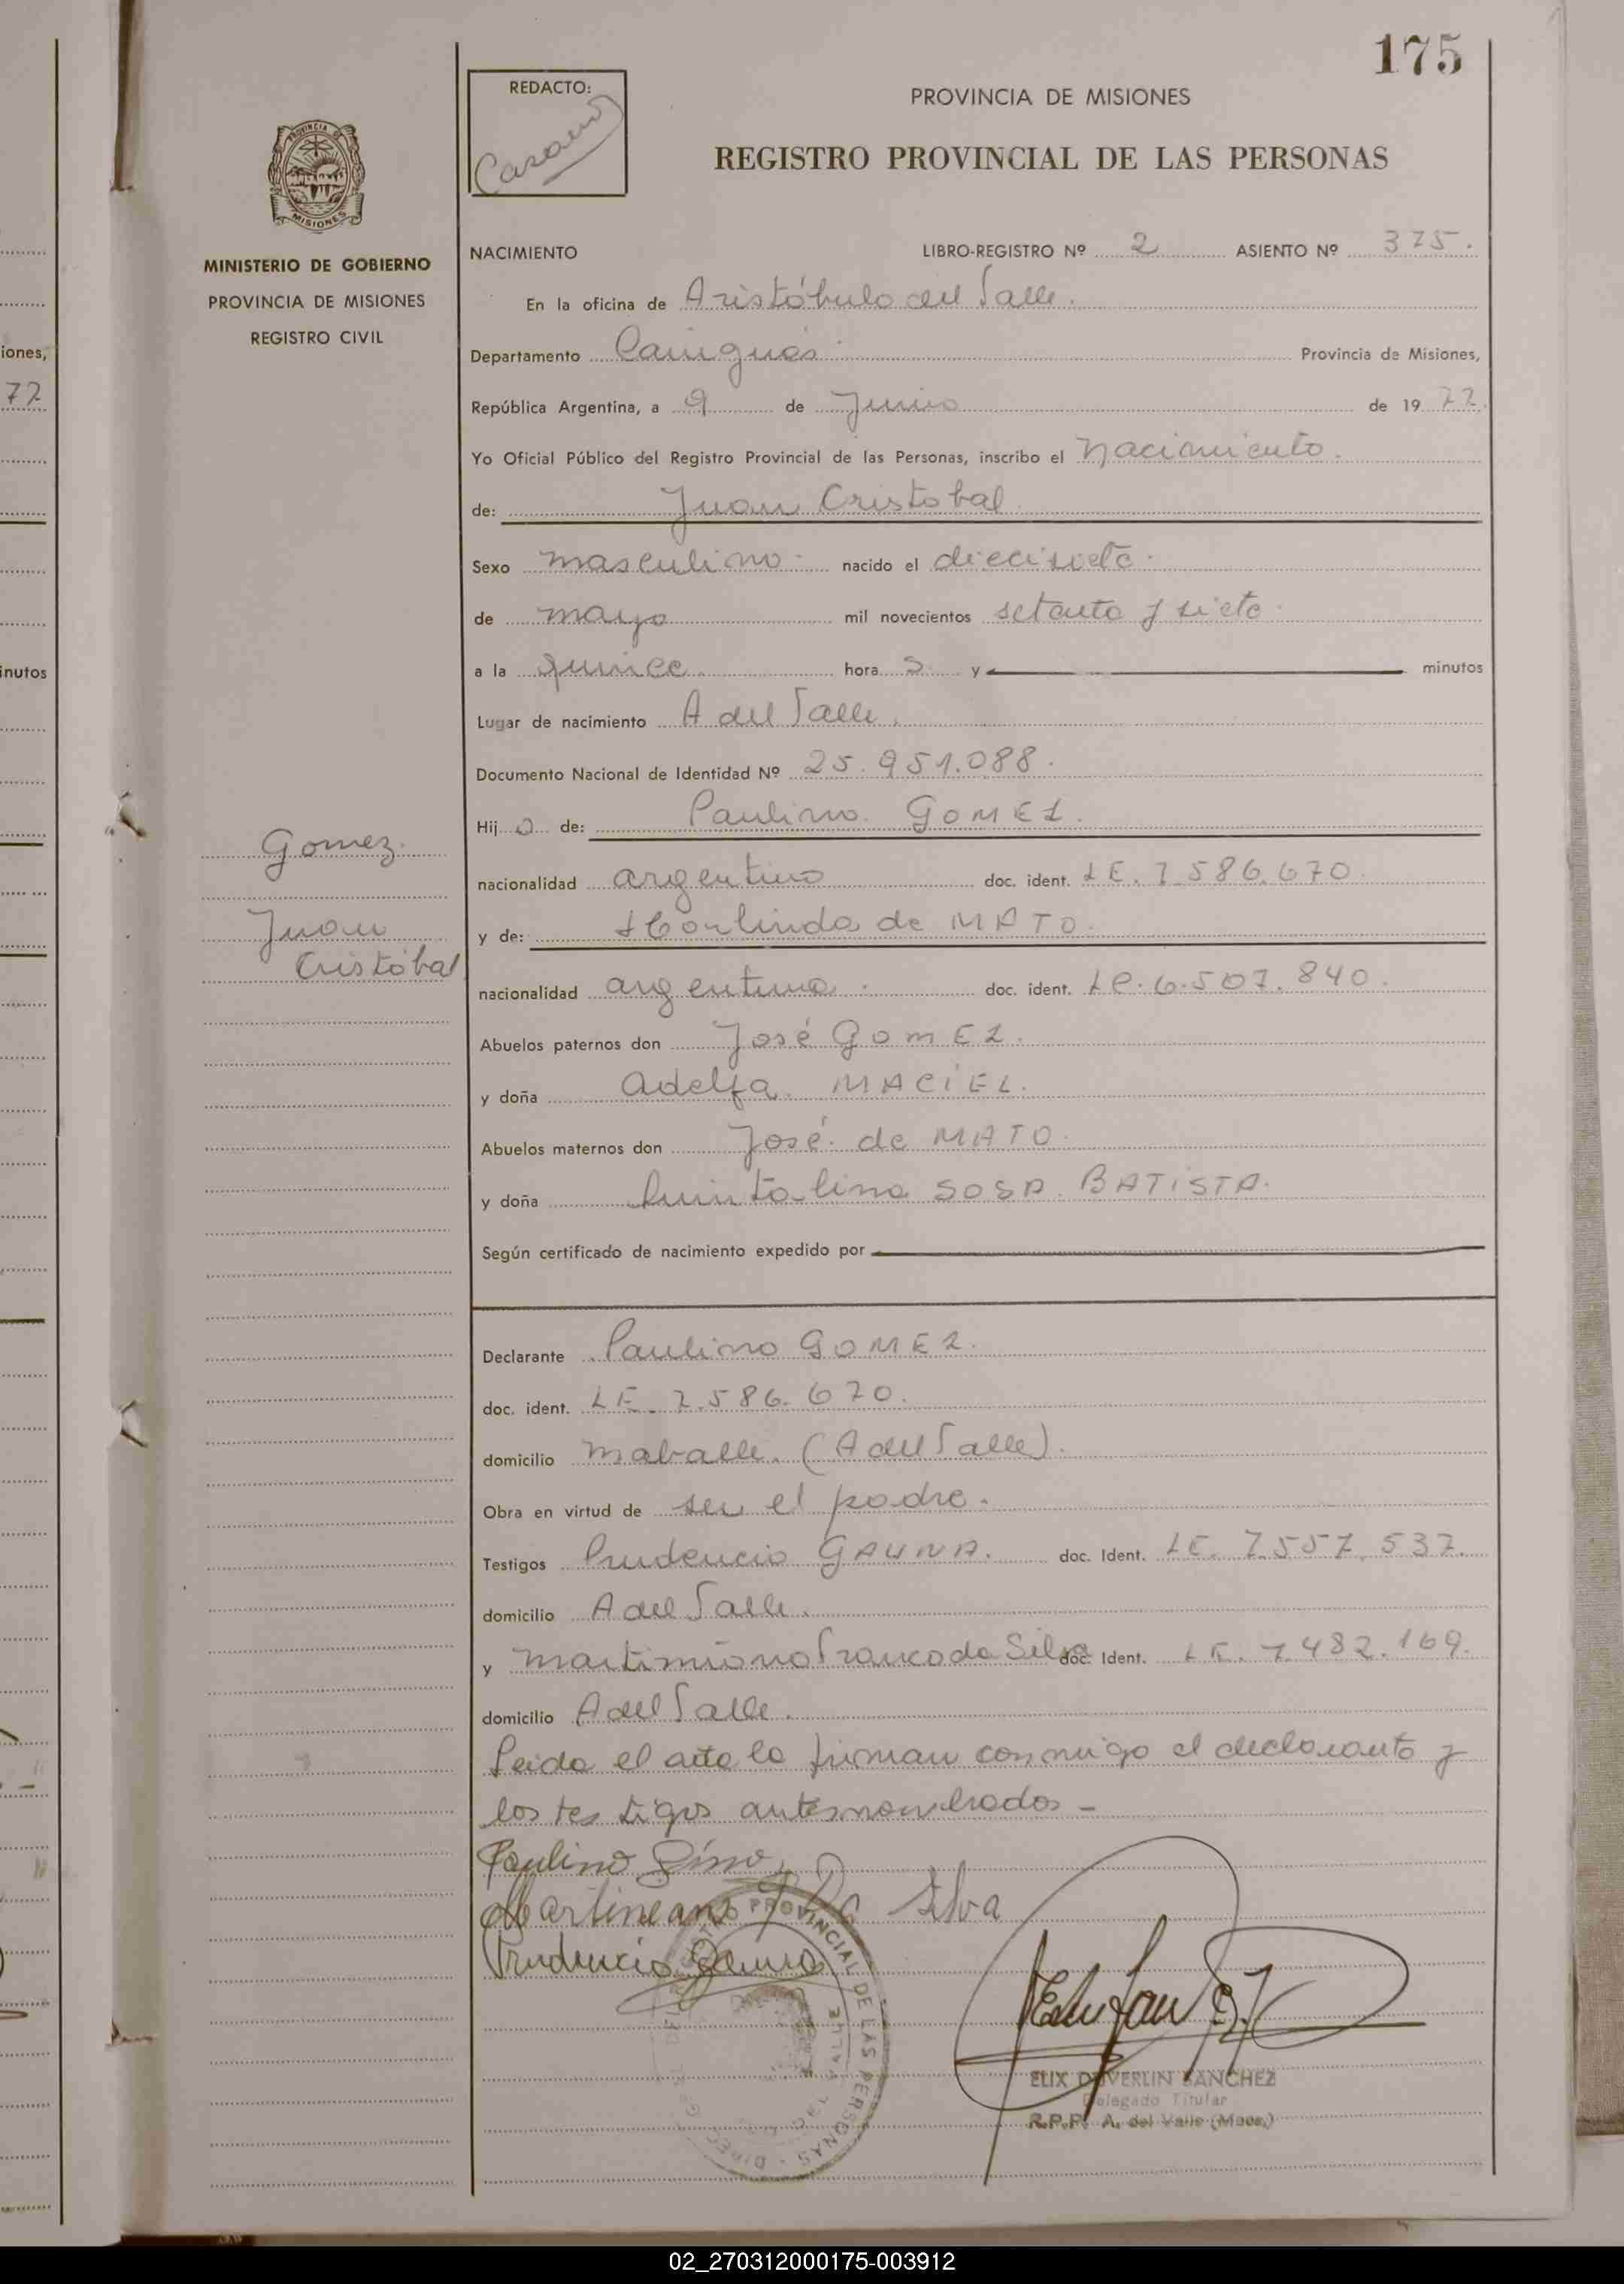 175
REDACTO:
PROVINCIA DE MISIONES
REGISTRO PROVINCIAL DE LAS PERSONAS
MINISTERIO DE GOBIERNO
PROVINCIA DE MISIONES
REGISTRO CIVIL
iones,
72
inutos
NACIMIENTO LIBRO-REGISTRO Nº 2 ASIENTO Nº 375.
En la oficina de Aristóbulo del Valle.
Departamento Cainguás Provincia de Misiones,
República Argentina, a 9 de Junio de 1977.
Yo Oficial Público del Registro Provincial de las Personas, inscribo el nacimiento.
de: Juan Cristobal
Sexo masculino nacido el diecisiete
de mayo mil novecientos setenta y siete
a la quince hora s y minutos
Lugar de nacimiento A del Valle.
Documento Nacional de Identidad Nº 25.951.088.
Hij o de: Paulino GOMEZ.
Gomez.
Juan
Cristóbal
nacionalidad argentino doc. ident. LE. 7.586.670
y de: Horlinda de MATO.
nacionalidad argentina doc. ident. LC. 6.507.840.
Abuelos paternos don José GOMEZ.
y doña Adelfa MACIEL.
Abuelos maternos don José de MATO
y doña SOSA BATISTA.
Según certificado de nacimiento expedido por
Declarante Paulino GOMEZ.
doc. ident. LE. 7.586.670.
domicilio (A del Valle).
Obra en virtud de ser el padre.
Testigos Prudencio GAUNA. doc. Ident. LE. 7.557.537.
domicilio A del Valle.
y da Silva doc. Ident. LE. 7.482.169.
domicilio A del Valle.
Leida el acta la firman conmigo el declarante y
los testigos antesnombrados -
Paulino
Da Silva
Prudencio Gauna
PROVINCIAL DE LAS PERSONAS
ELIX DUVERLIN SANCHEZ
Delegado Titular
R.P.P. A. del Valle (Mnes.)
02_270312000175-003912